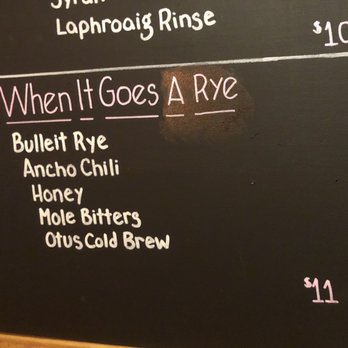 Laphroaig Rinse
$10
When It Goes A Rye
Bulleit Rye
Ancho Chili
Honey
Mole Bitters
Otus Cold Brew
$11